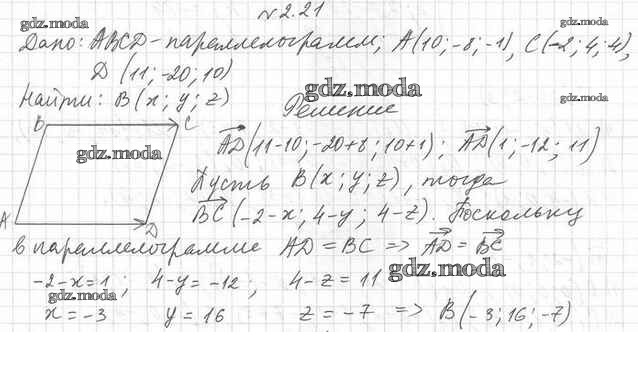 №2.21
gdz.moda gdz.moda
Дано: ABCD - параллелограмм; A(10; -8; -1), C(-2; 4; 4),
D(11; -20; 10)
gdz.moda gdz.moda
Найти: B(x; y; z)
Решение
B C
AD(11-10; -20+8; 10+1); AD(1; -12; 11)
gdz.moda
Пусть B(x; y; z), тогда
A D
BC(-2-x; 4-y; 4-z). Поскольку
в параллелограмме AD = BC => AD = BC
gdz.moda
-2-x=1; 4-y=-12; 4-z=11
gdz.moda
x=-3 y=16 z=-7 => B(-3; 16; -7)